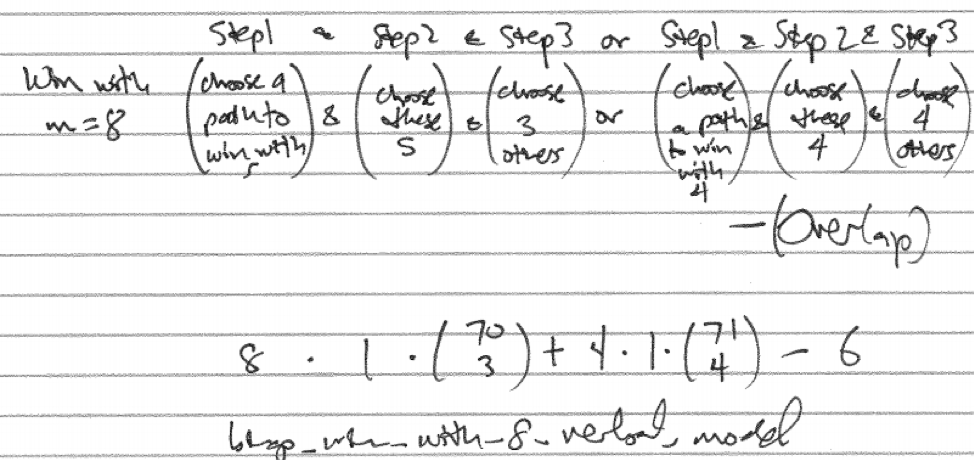 Step1 & Step2 & Step3 or Step1 & Step2 & Step3
Win with m=8 (choose a path to win with 5) & (choose these 5) & (choose 3 others) or (choose a path to win with 4) & (choose these 4) & (choose 4 others)
- (Overlap)
8 · 1 · (70 3) + 4 · 1 · (71 4) - 6
bingo_win_with_8_verbal_model